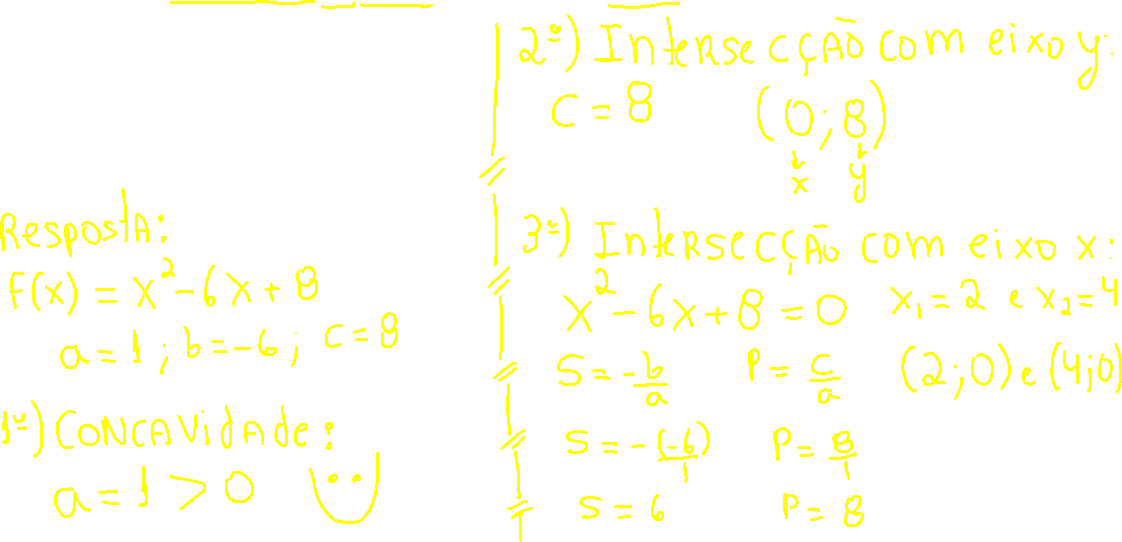 Resposta:
F(x) = x² - 6x + 8
a = 1 ; b = -6 ; c = 8
1º) Concavidade:
a = 1 > 0
2º) Intersecção com eixo y:
c = 8 (0; 8)
x y
3º) Intersecção com eixo x:
x² - 6x + 8 = 0 x₁ = 2 e x₂ = 4
S = -b/a P = c/a (2; 0) e (4; 0)
S = -(-6)/1 P = 8/1
S = 6 P = 8